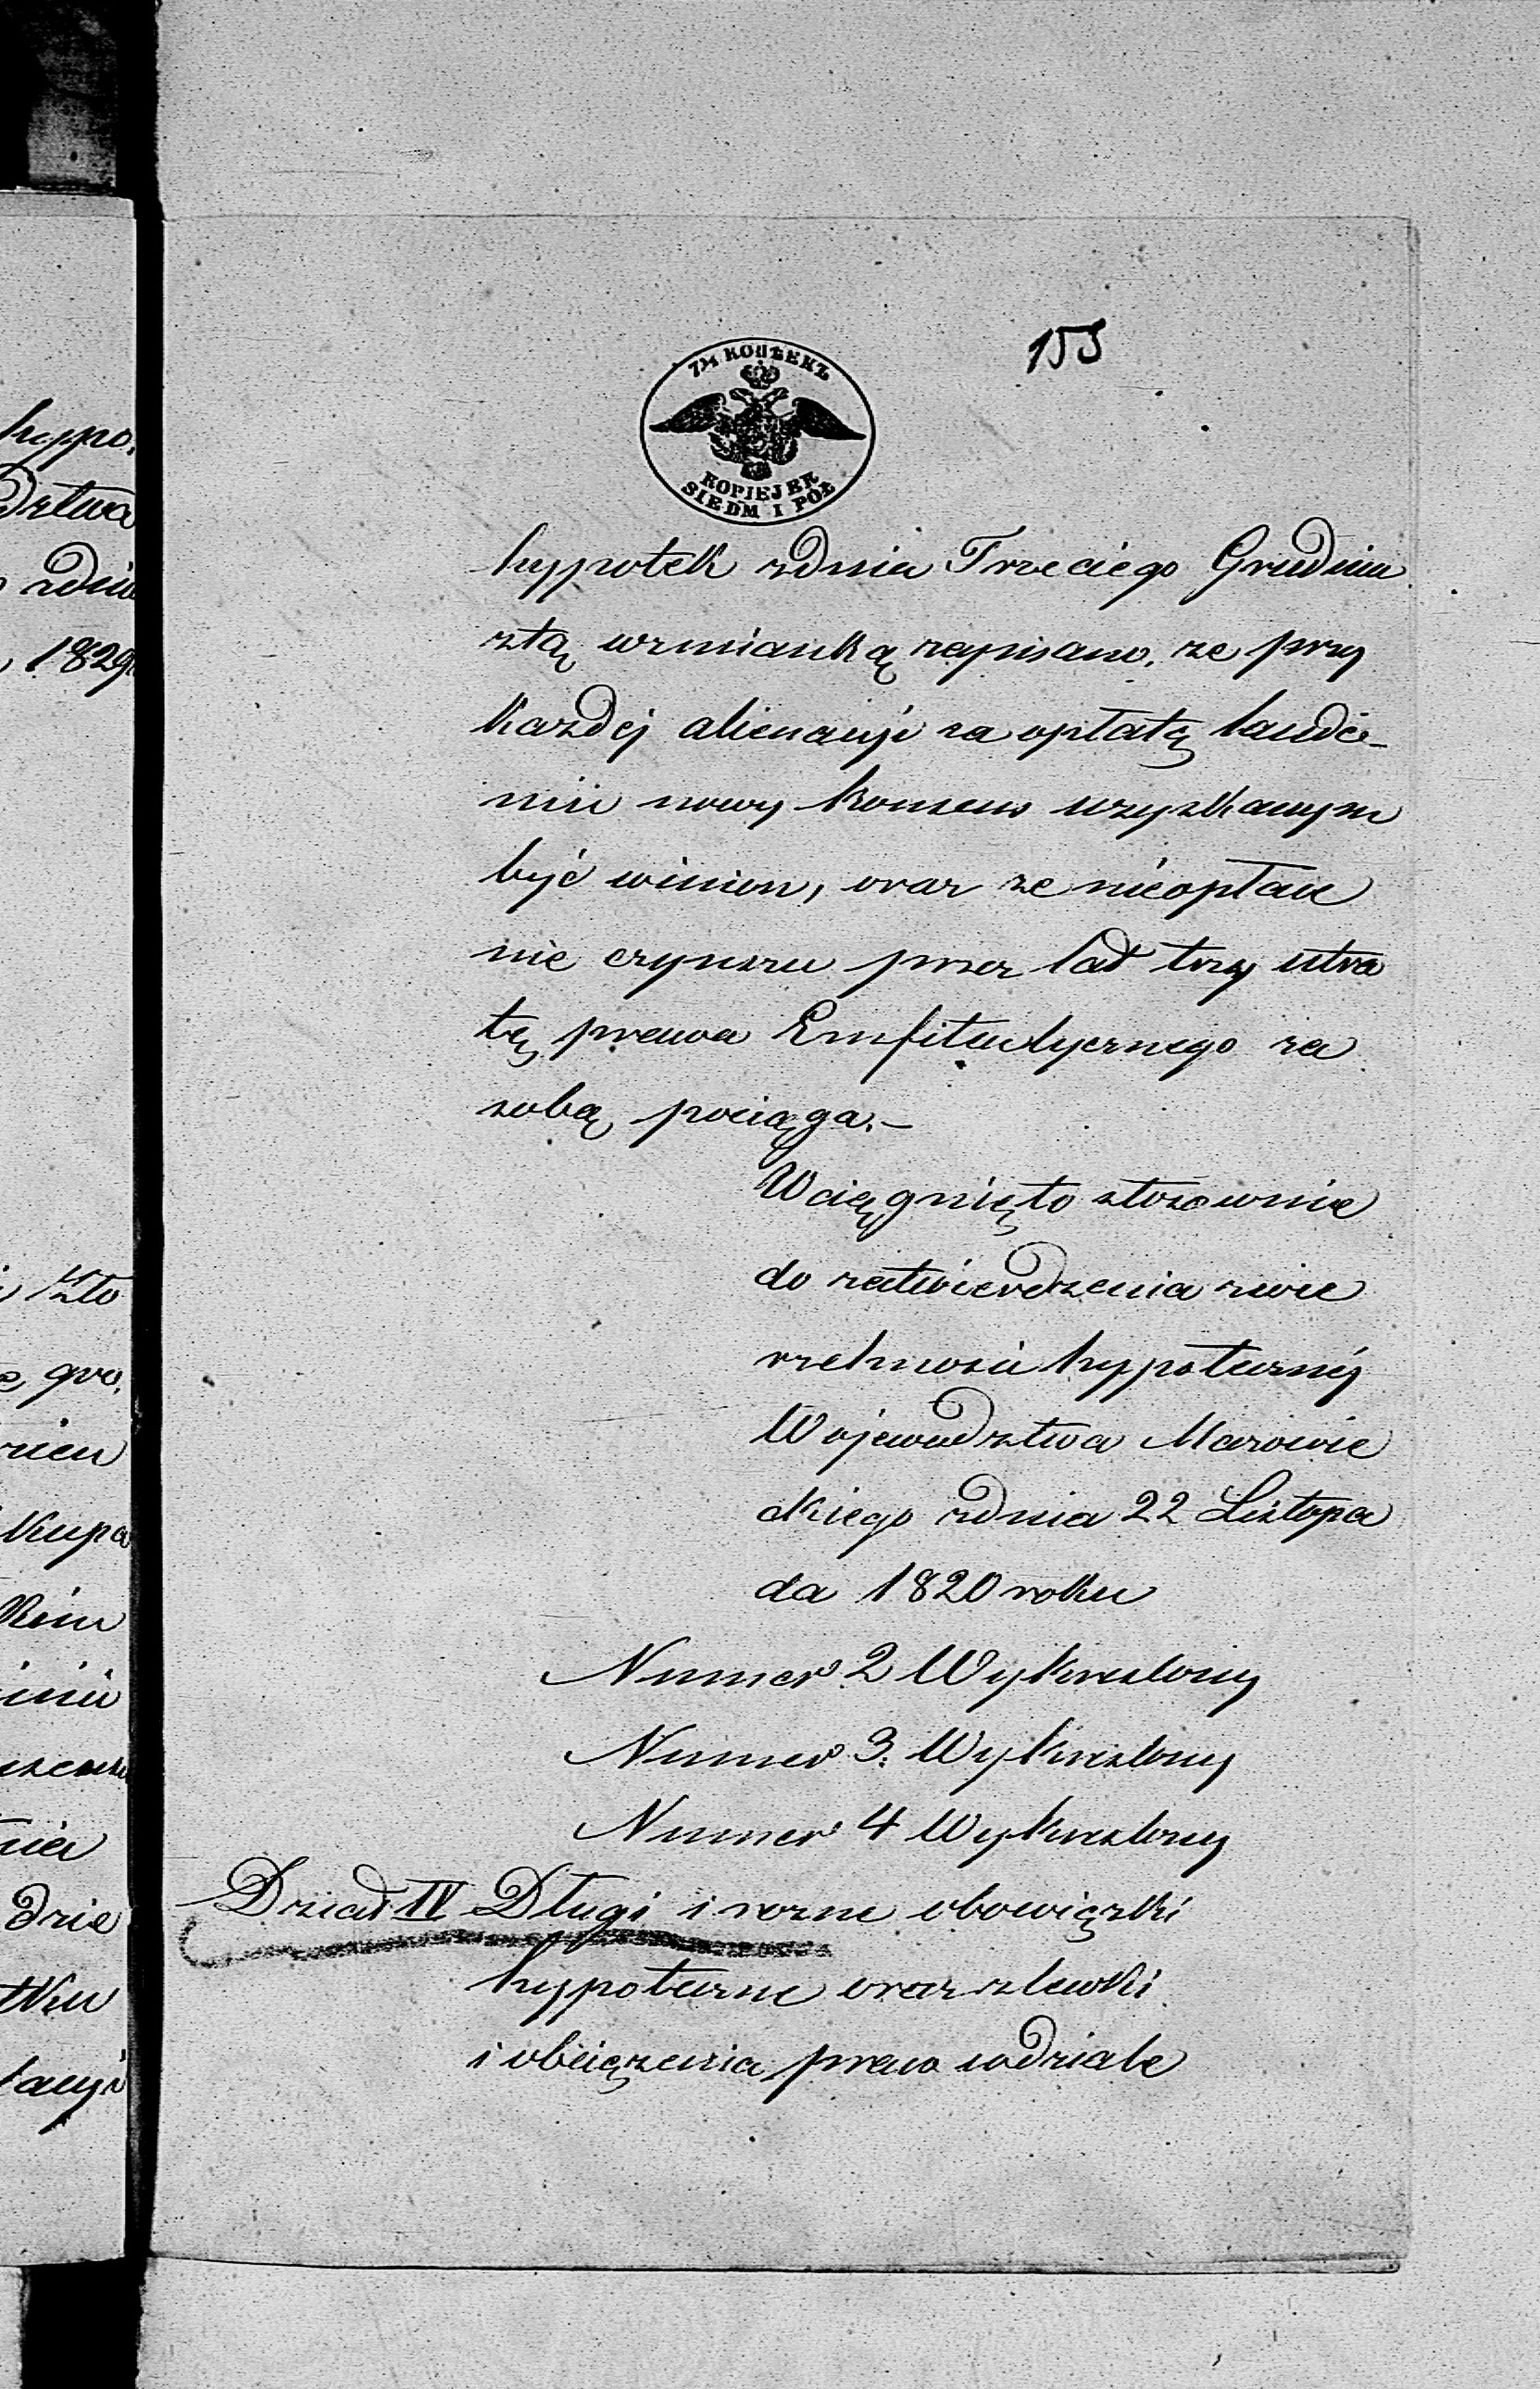 155
7½ КОПѢЕКЪ
KOPIEJEK
SIEDM I POŁ
hypotek zdnia Trzeciego Grudnia
ztą wzmianką zapisano, ze przy
Kazdéj alienacyi za opłatą laude-
mii nowy Konsens uzyskanym
być winien, oraz ze nieopłace
nie czynszu przez lat trzy utra
tę prawa Emfiteutycznego za
sobą pociąga.-
Wciągnięto stosownie
do zatwierdzenia zwie
rzchnosci hypoteczney
Wojewodztwa Mazowie
ckiego zdnia 22 Listopa
da 1820 roku
Numer 2 Wykreslony
Numer 3. Wykreslony
Numer 4 Wykreslony
Dział IV Długi i rozne obowiązki
hypoteczne oraz zlewki
i obciązenia praw w dziale
hypo,
dztwa
zdnia
1829
Zto
gro,
Kupa
dzie
tku